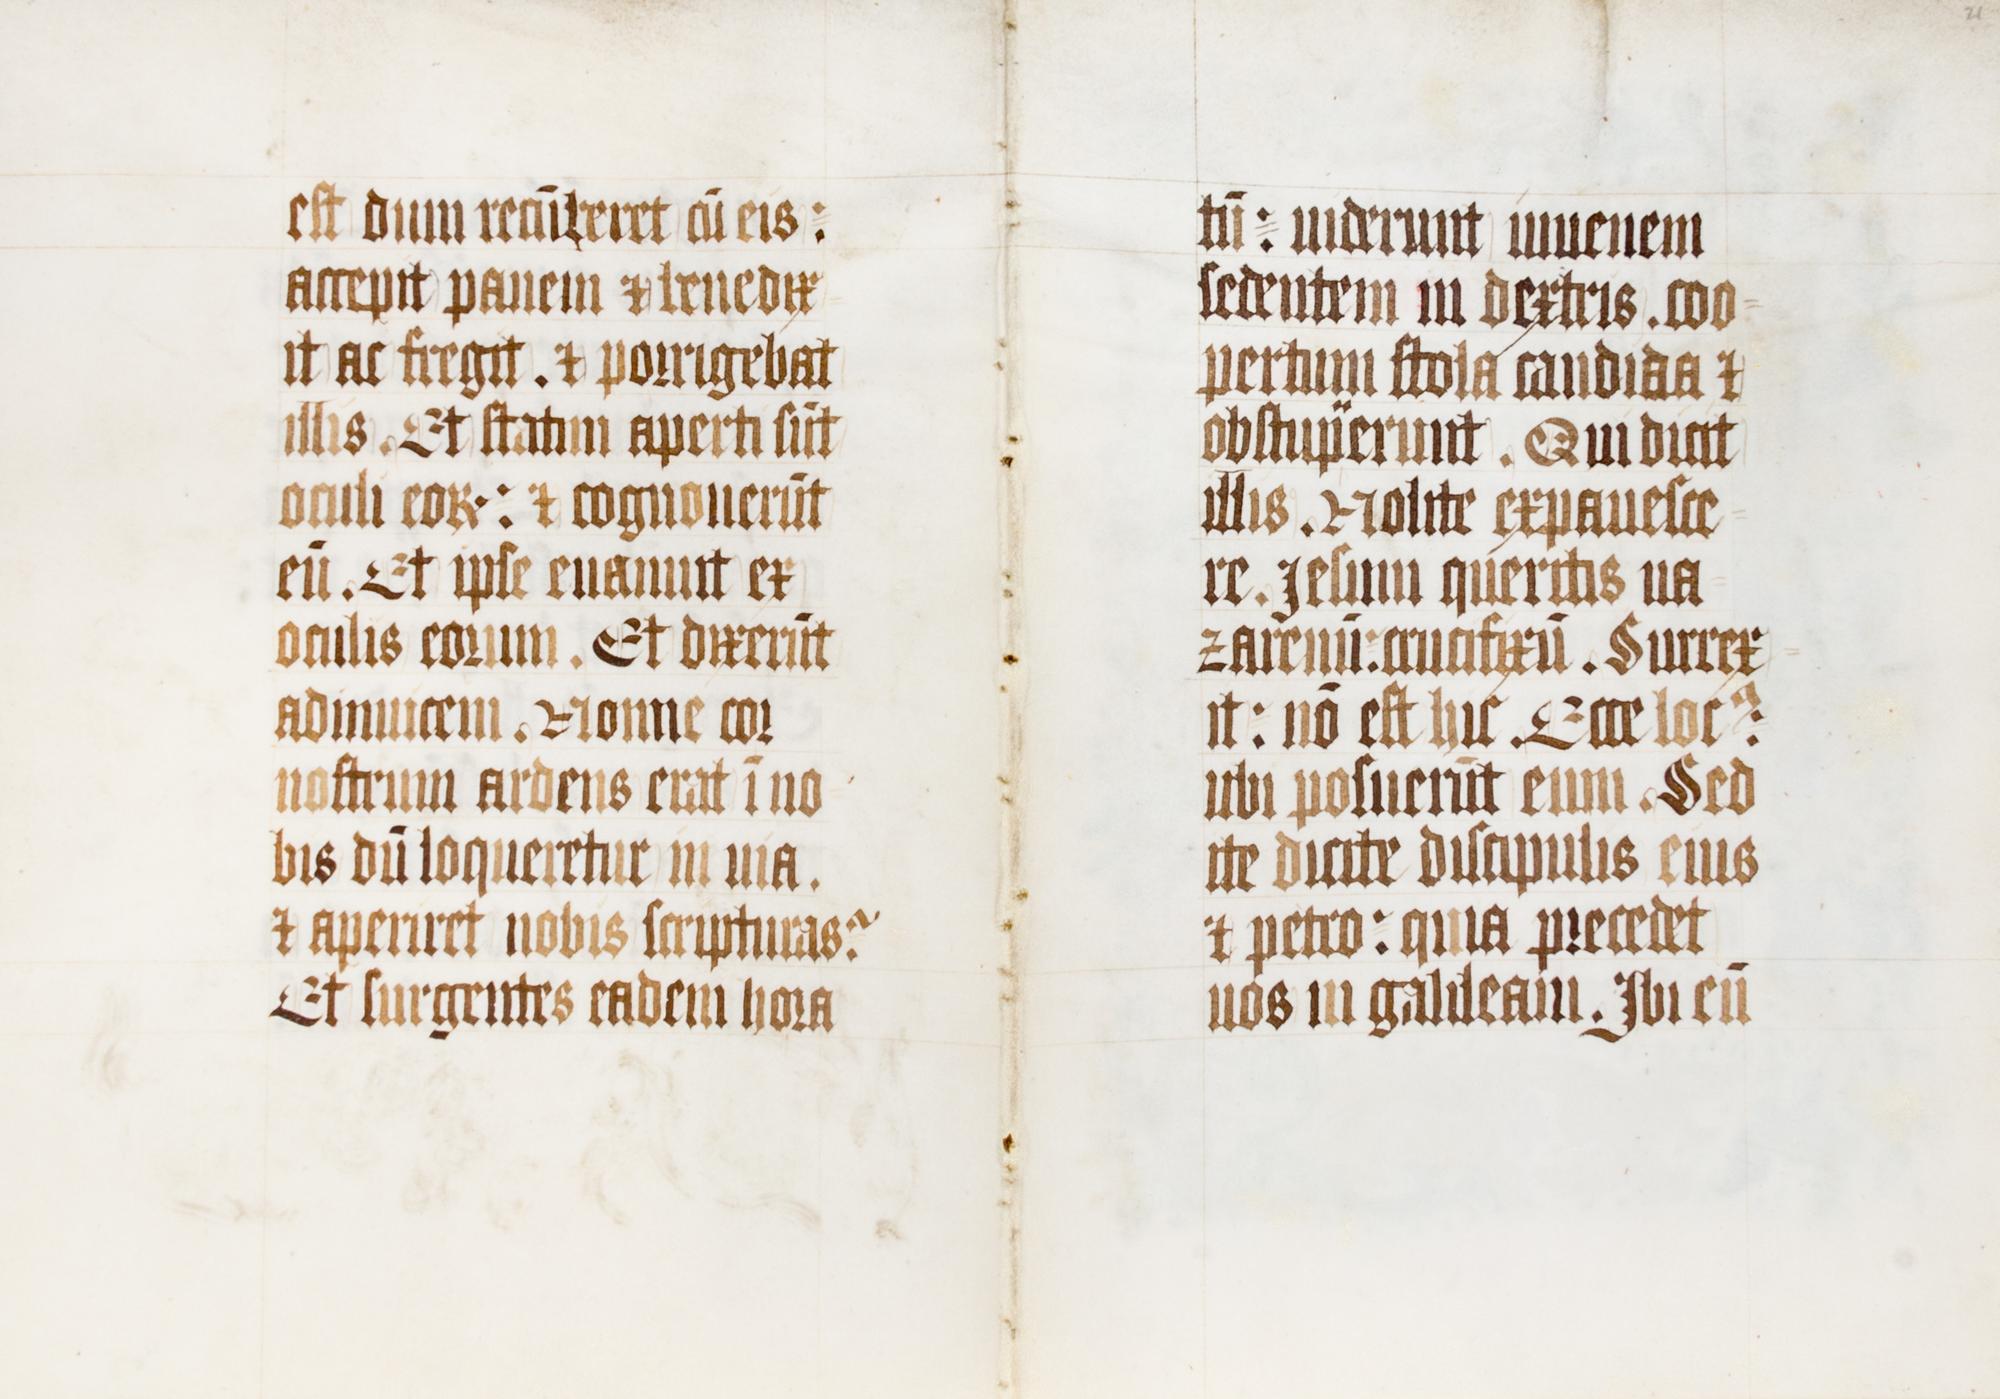 est dum recūberet cū eis:
accepit panem ⁊ benedix
it ac fregit. ⁊ porrigebat
illis. Et statim aperti sūt
oculi eoꝝ: ⁊ cognouerūt
eū. Et ipse euanuit ex
oculis eorum. Et dixerūt
adinuicem. Nonne cor
nostrum ardens erat ī no
bis dū loqueretur in uia.
⁊ aperiret nobis scripturas?
Et surgentes eadem hora
21
tū: uiderunt iuuenem
sedentem in dextris. coo-
pertum stola candida ⁊
obstupuerunt. Qui dicit
illis. Nolite expauesce-
re. Jesum queritis na-
zarenū: crucifixū. Surrex-
it: nō est hic. Ecce locꝰ:
ubi posuerūt eum. Sed
ite dicite discipulis eius
⁊ petro: quia precedet
uos in galileam. Ibi eū